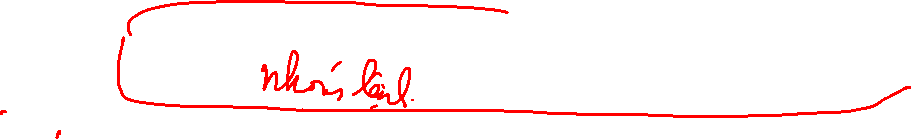 nhóm lệnh